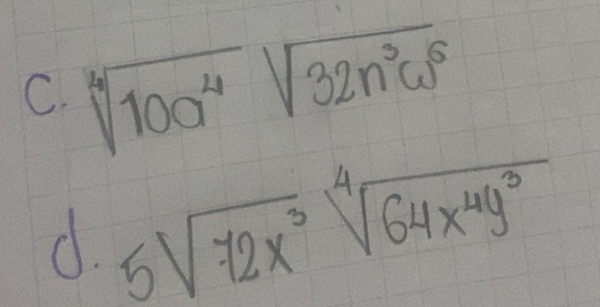 c. ∜10a⁴ √32n³ω⁶
d. 5√72x³ ∜64x⁴y³